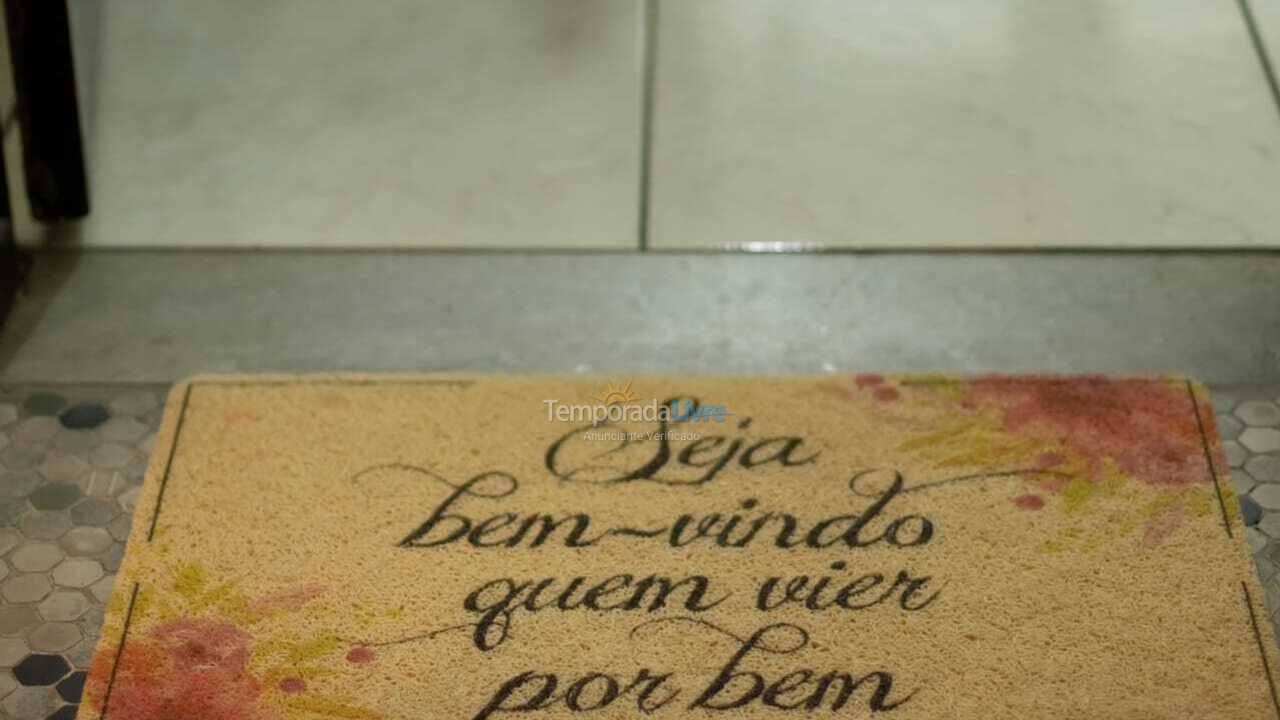 TemporadaLivre
Anunciante Verificado
Seja
bem-vindo
quem vier
por bem